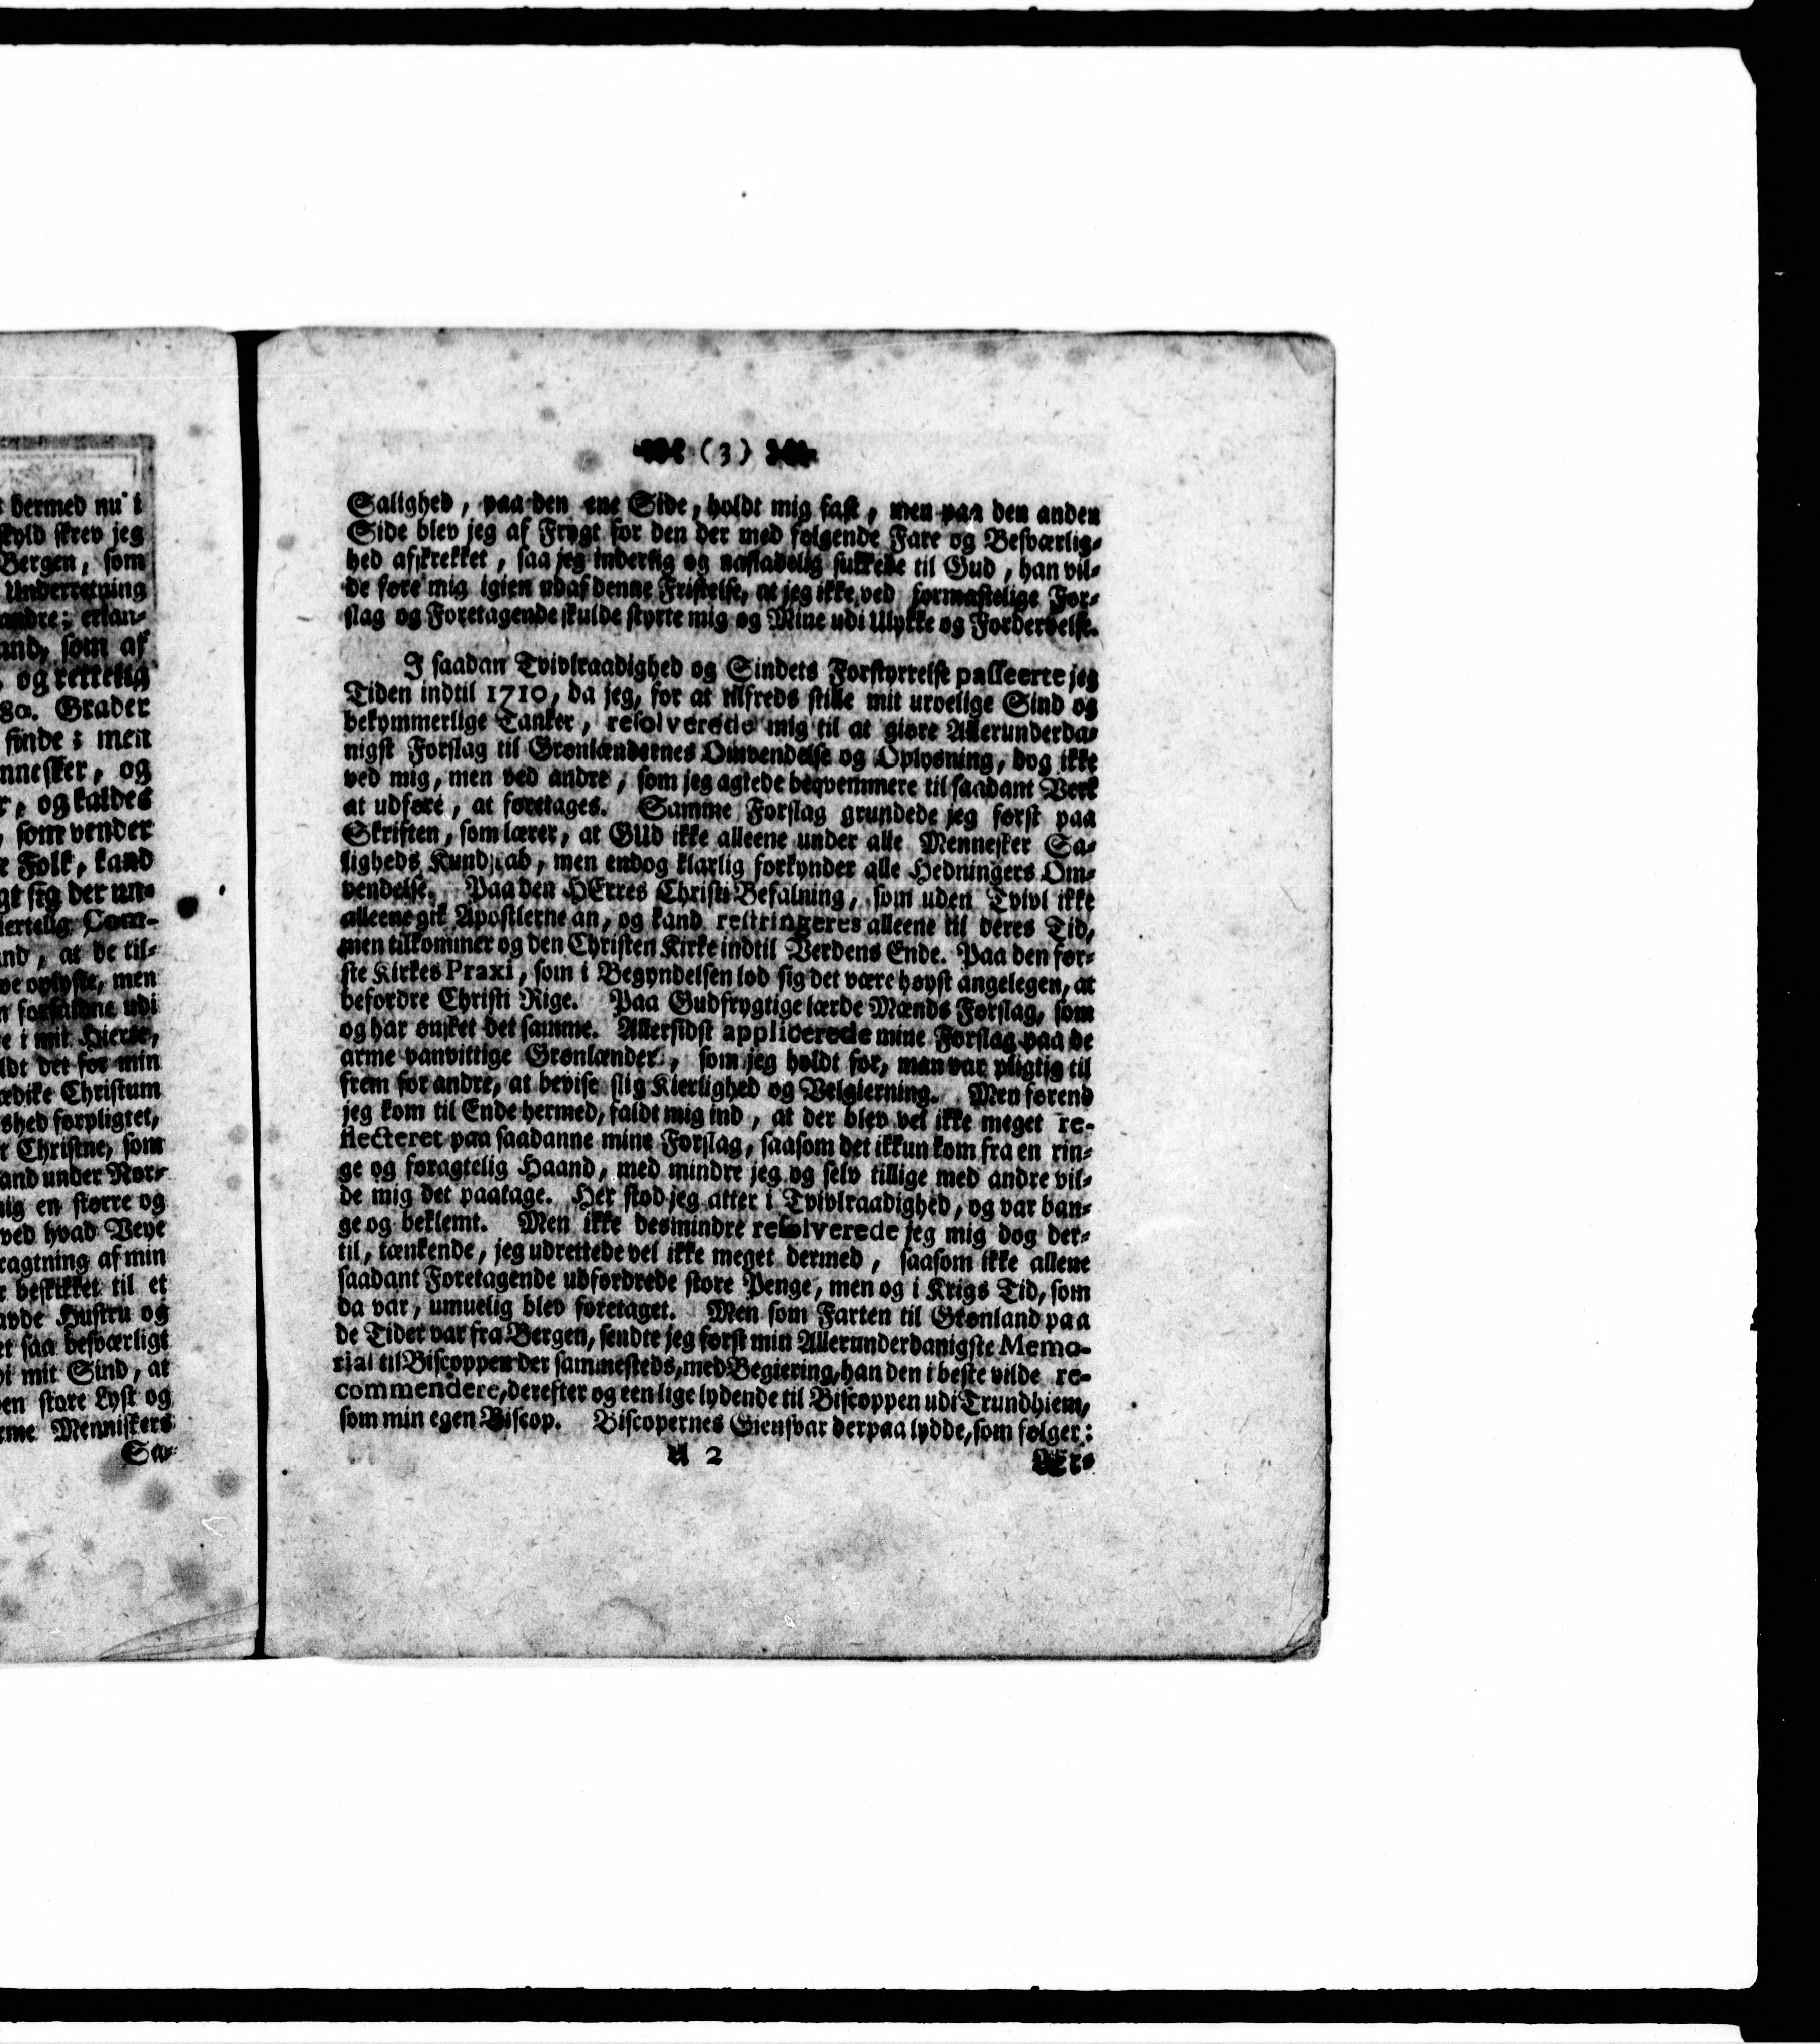 dermed nu i
skyld skrev jeg
Bergen, som
Underretning
andre; erlan-
and, som af
og rettelig
80. Grader
finde; men
nnesker, og
r, og kaldes
som vender
e Folk, kand
gt sig der un-
iertelig Com-
nd, at de til-
oplyste, men
n forfaldne udi
e i mit Hierte,
ldt det for min
ædike Christum
shed forpligtet,
r Christne, som
and under Nor-
nig en større og
ved hvad Veye
ragtning af min
r beskikket til et
avde Hustru og
et saa besværligt
i mit Sind, at
en store Lyst og
rme Menniskers
Sa-
(3)
Salighed, paa den ene Side, holdt mig fast, men paa den anden
Side blev jeg af Frygt for den der med følgende Fare og Besværlig-
hed afskrekket, saa jeg inderlig og uafladelig sukkede til Gud, han vil-
de føre mig igien udaf denne Fristelse, at jeg ikke ved formastelige For-
slag og Foretagende skulde styrte mig og Mine udi Ulykke og Fordervelse.
I saadan Tvivlraadighed og Sindets Forstyrrelse passeerte jeg
Tiden indtil 1710, da jeg, for at tilfreds stille mit uroelige Sind og
bekymmerlige Tanker, resolverede mig til at giøre Allerunderda-
nigst Forslag til Grønlændernes Omvendelse og Oplysning, dog ikke
ved mig, men ved andre, som jeg agtede beqvemmere til saadant Verk
at udføre, at foretages. Samme Forslag grundede jeg først paa
Skriften, som lærer, at GUd ikke alleene under alle Mennesker Sa-
ligheds Kundskab, men endog klarlig forkynder alle Hedningers Om-
vendelse. Paa den HErres Christi Befalning, som uden Tvivl ikke
alleene gik Apostlerne an, og kand restringeres alleene til deres Tid,
men tilkommer og den Christen Kirke indtil Verdens Ende. Paa den før-
ste Kirkes Praxi, som i Begyndelsen lod sig det være høyst angelegen, at
befordre Christi Rige. Paa Gudfrygtige lærde Mænds Forslag, som
og har ønsket det samme. Allersidst applicerede mine Forslag paa de
arme vanvittige Grønlænder, som jeg holdt for, man var pligtig til
frem for andre, at bevise slig Kierlighed og Velgierning. Men førend
jeg kom til Ende hermed, faldt mig ind, at der blev vel ikke meget re-
flecteret paa saadanne mine Forslag, saasom det ikkun kom fra en rin-
ge og foragtelig Haand, med mindre jeg og selv tillige med andre vil-
de mig det paatage. Her stod jeg atter i Tvivlraadighed, og var ban-
ge og beklemt. Men ikke desmindre resolverede jeg mig dog der-
til, tænkende, jeg udrettede vel ikke meget dermed, saasom ikke allene
saadant Foretagende udfordrede store Penge, men og i Krigs Tid, som
da var, umuelig blev foretaget. Men som Farten til Grønland paa
de Tider var fra Bergen, sendte jeg først min Allerunderdanigste Memo-
rial til Biscoppen der sammesteds, med Begiering, han den i beste vilde re-
commendere, derefter og een lige lydende til Biscoppen udi Trundhiem,
som min egen Biscop. Biscopernes Giensvar derpaa lydde, som følger:
A 2